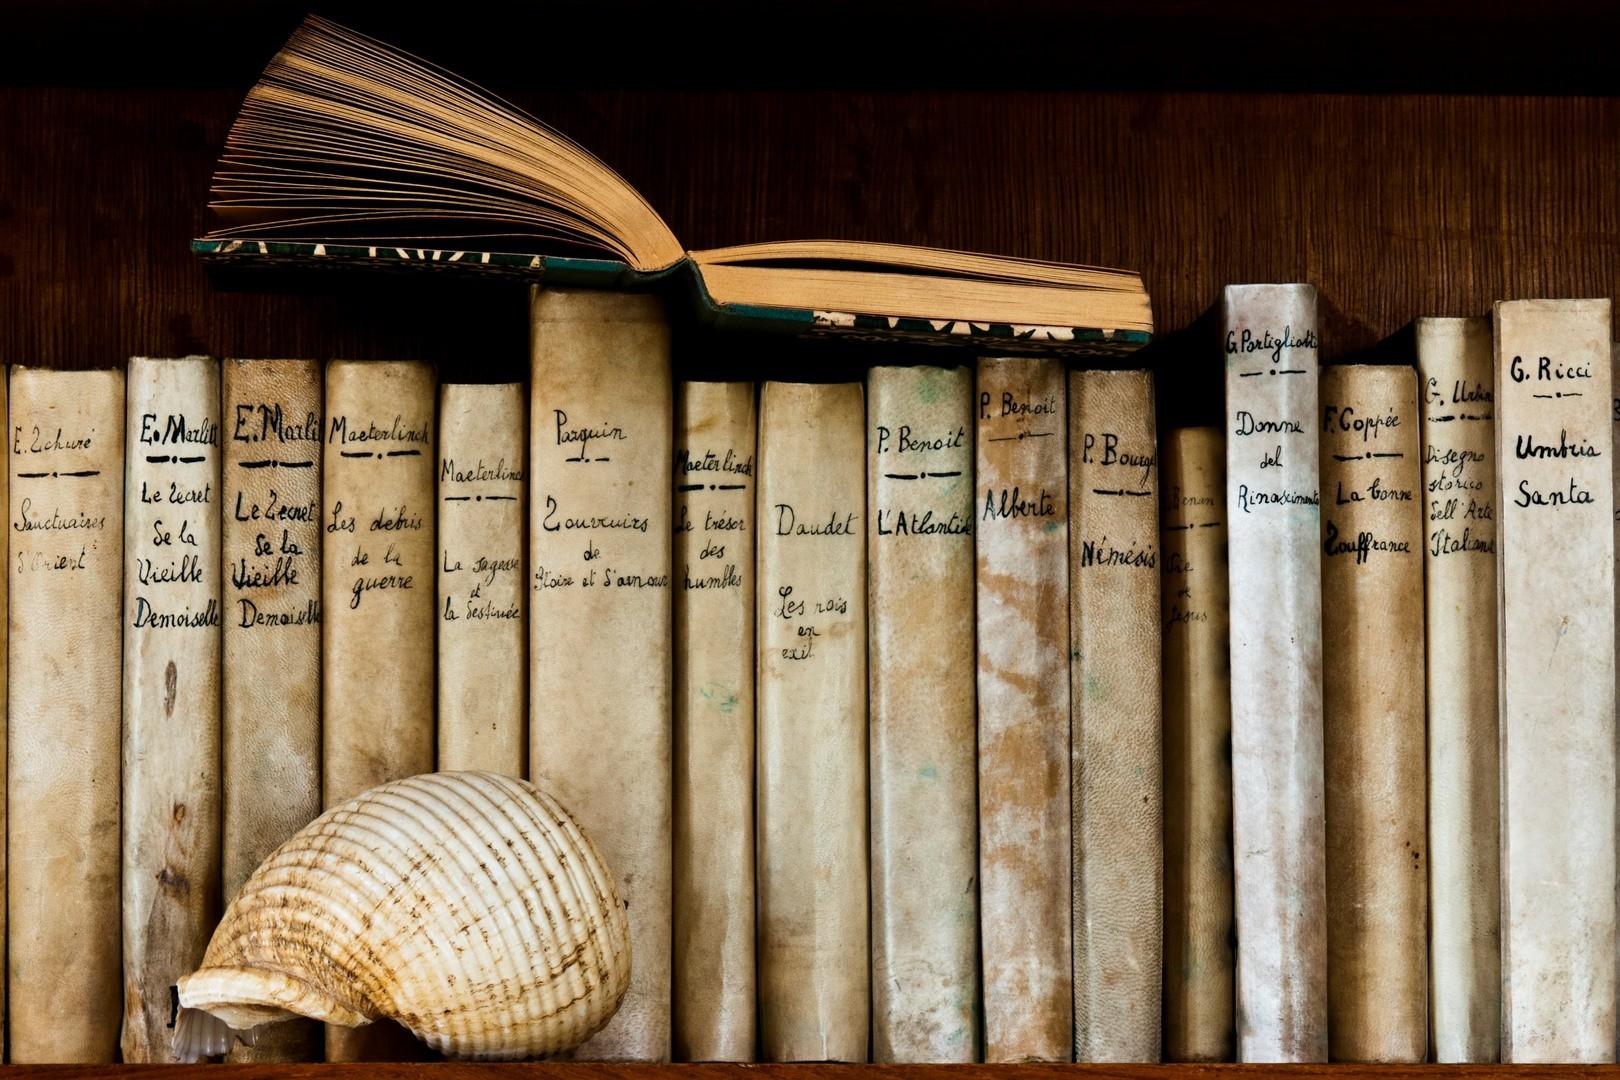 E. Schuré
Sanctuaires
d'Orient
E. Marlitt
Le Secret
de la
Vieille
Demoiselle
E. Marli
Le Secret
de la
Vieille
Demoiselle
Maeterlinck
Les débris
de la
guerre
Maeterlinc
La sagesse
et
la destinée
Parquin
Souvenirs
de
Gloire et d'amour
Maeterlinck
Le trésor
des
humbles
Daudet
Les rois
en
exil
P. Benoit
L'Atlantide
P. Benoit
Alberte
P. Bourge
Némésis
Renan
Vie
de
Jésus
G. Portigliotti
Donne
del
Rinascimento
F. Coppée
La bonne
Souffrance
G. Urbin
Disegno
storico
dell'Arte
Italiana
G. Ricci
Umbria
Santa